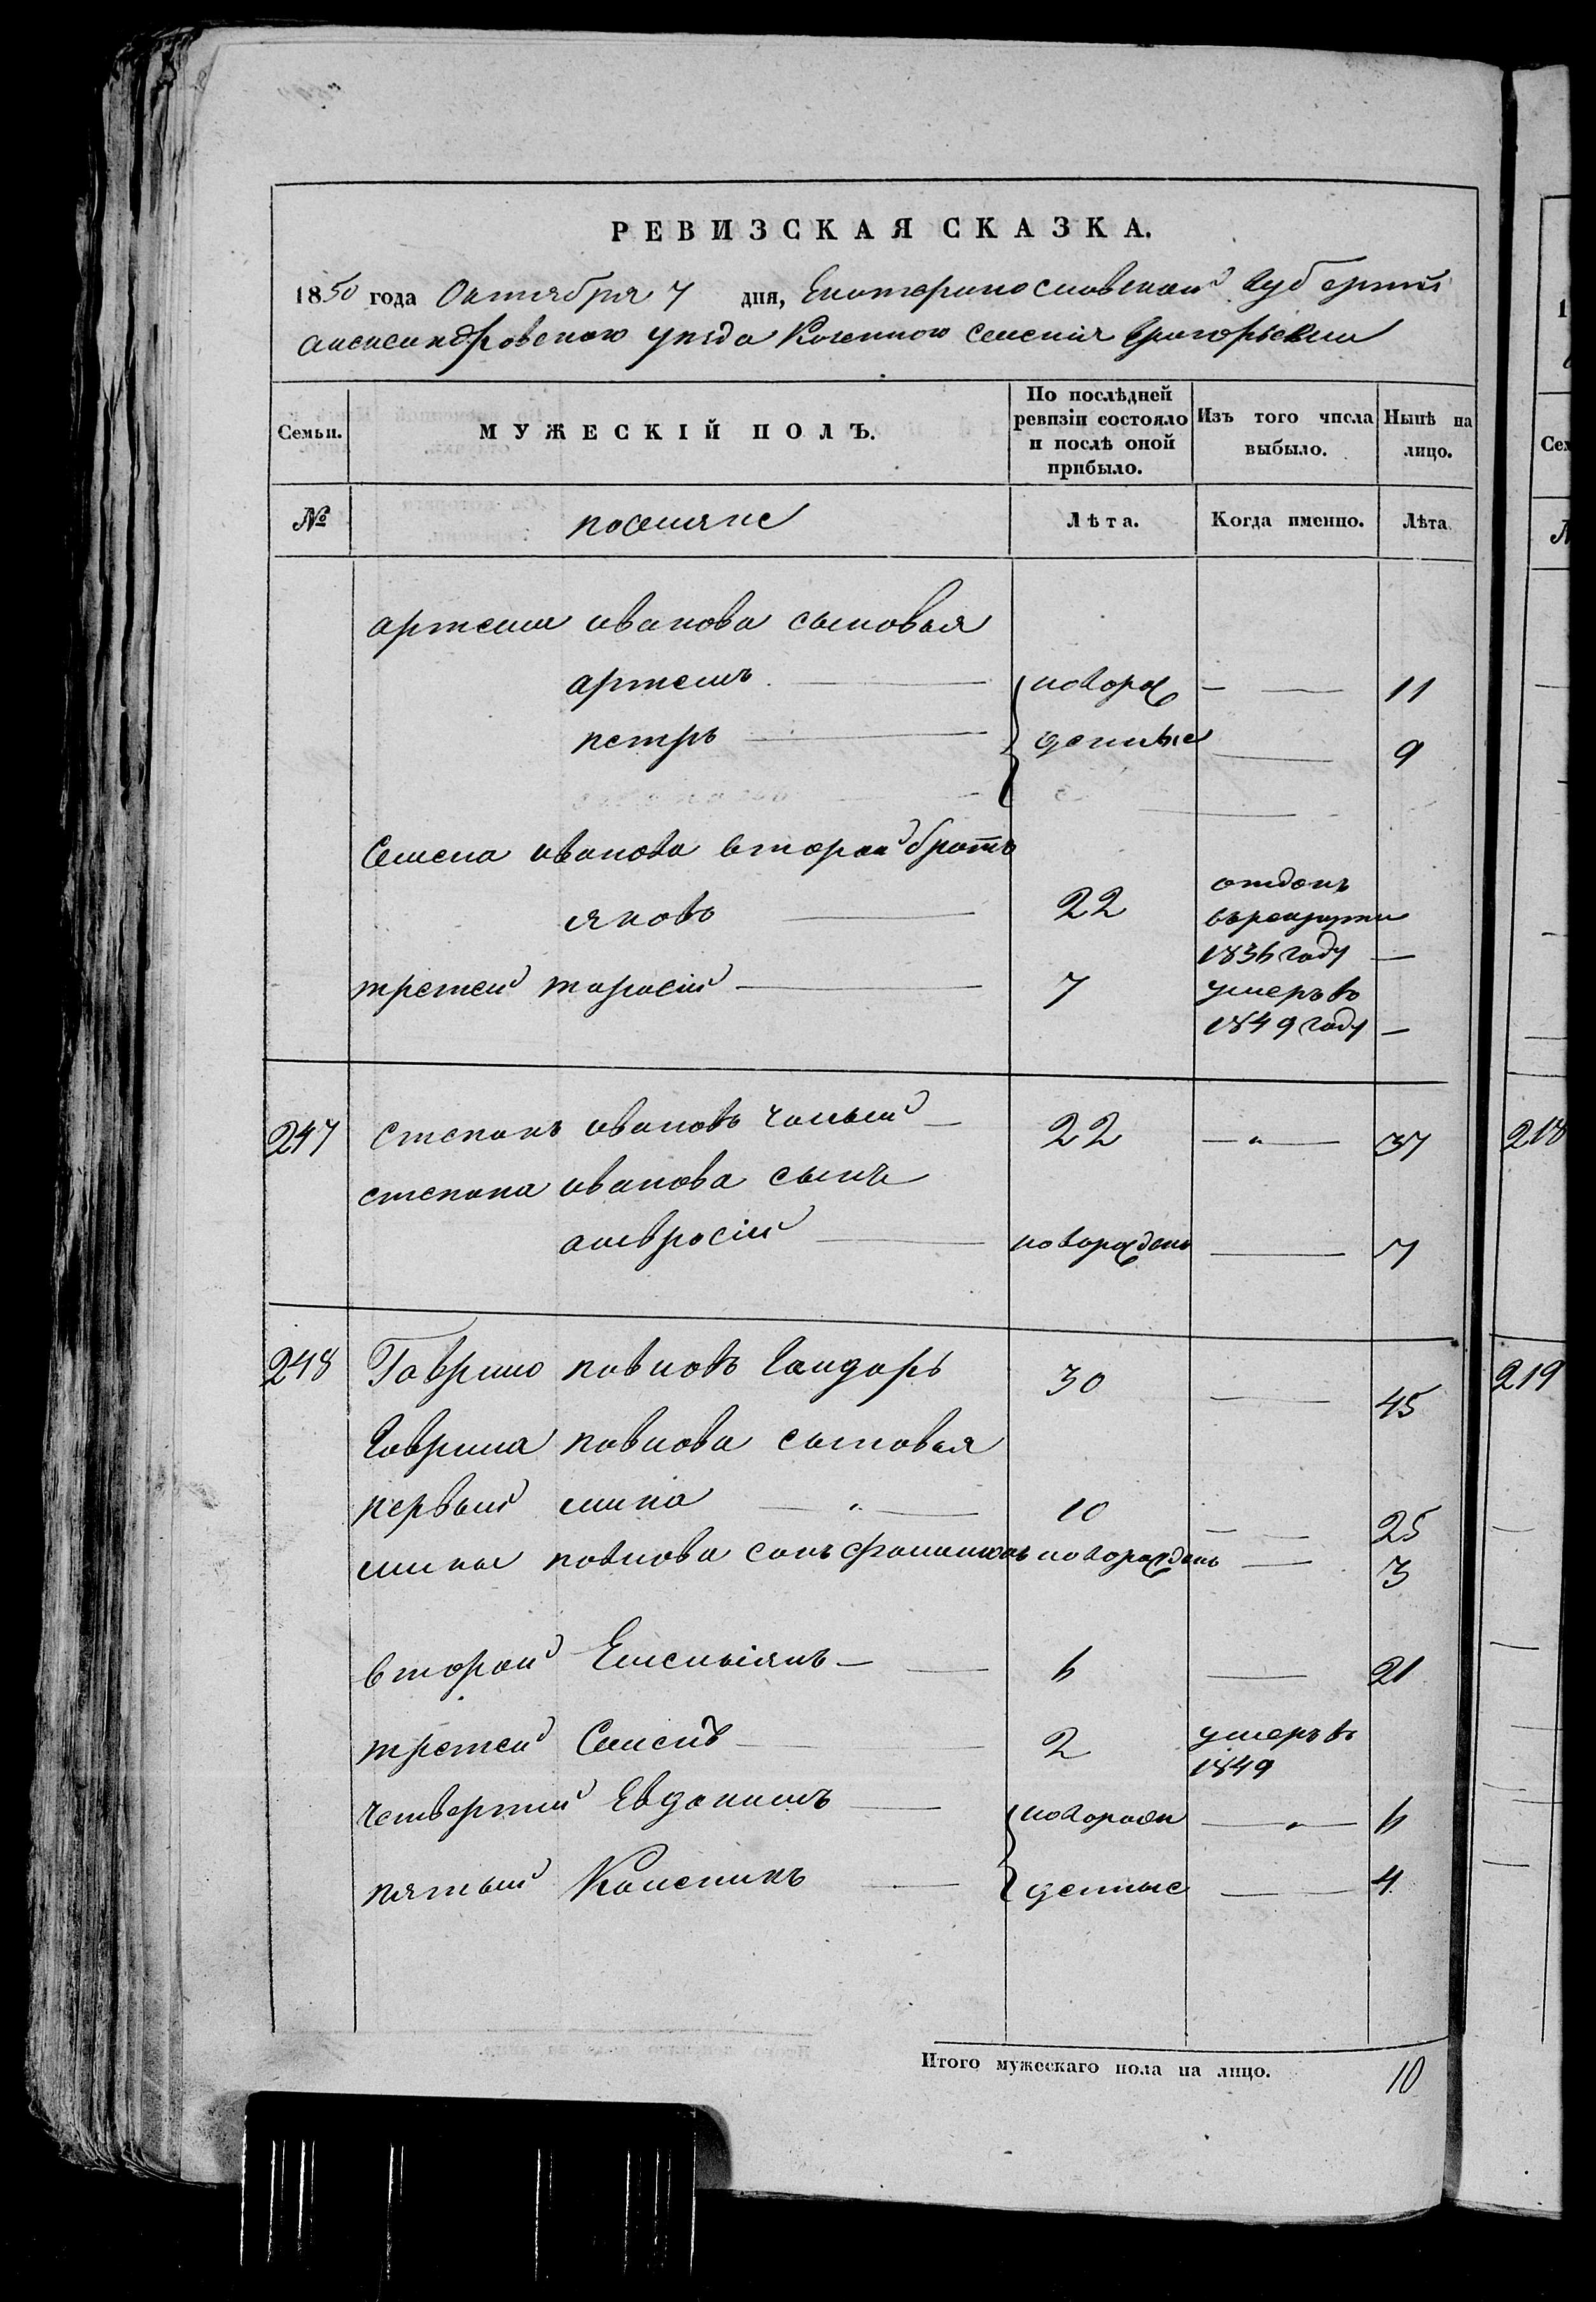 РЕВИЗСКАЯ СКАЗКА.
1850 года Октября 7 дня, Екатеринославской Губернии
александровского уезда Казенного селения Григорьевки
Семьи. МУЖЕСКІЙ ПОЛЪ. По послѣдней ревизіи состояло и послѣ оной прибыло. Изъ того числа выбыло. Нынѣ на лицо.
№ поселяне Лѣта. Когда именно. Лѣта.
артема иванова сыновья
артемъ новорож 11
петръ денные 9
Семена иванова второй братъ
яковъ 22 отданъ в рекруты 1836 году
третей тарасій 7 умеръ въ 1849 году
247 степанъ ивановъ 22 37
степана иванова сынъ
амвросій новорожденъ 7
248 Гаврило павловъ 30 45
Гаврила павлова сыновья
первый мина 10 25
мины павлова сынъ новорожденъ 3
второй Емельянъ 6 21
третей Семенъ 2 умеръ въ 1849
четвертый Евдокимъ новорож 6
пятый Калепикъ денные 4
Итого мужескаго пола на лицо. 10
218
219